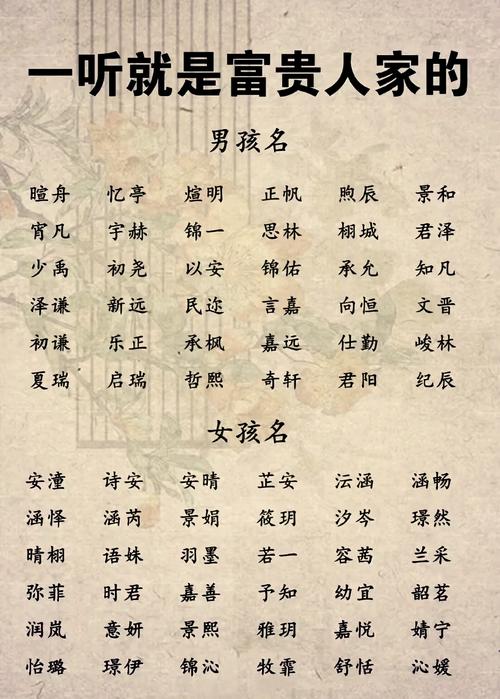 一听就是富贵人家的
男孩名
暄舟 忆亭 煊明 正帆 煦辰 景和
宵凡 宇赫 锦一 思林 栩城 君泽
少禹 初尧 以安 锦佑 承允 知凡
泽谦 新远 民迩 言嘉 向恒 文晋
初谦 乐正 承枫 嘉远 仕勤 峻林
夏瑞 启瑞 哲熙 奇轩 君阳 纪辰
女孩名
安潼 诗安 安晴 芷安 沄涵 涵畅
涵怿 涵芮 景娟 筱玥 汐岑 璟然
晴栩 语姝 羽墨 若一 容茜 兰采
弥菲 时君 嘉善 予知 幼宜 韶茗
润岚 意妍 景熙 雅玥 嘉悦 婧宁
怡璐 璟伊 锦沁 牧霏 舒恬 沁媛